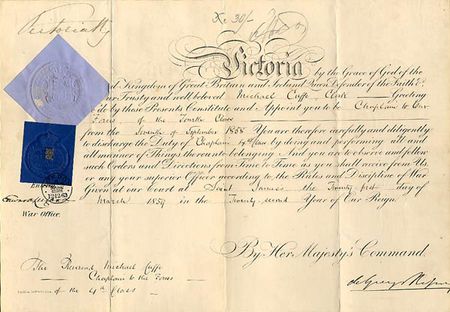 Victoria R
Victoria by the Grace of God of the
Kingdom of Great Britain and Ireland Queen Defender of the Faith &c
Our Trusty and well beloved Michael Cuffe Clerk Greeting
do by these Presents Constitute and Appoint you to be Chaplain to Our
Forces of the Fourth Class
from the Seventh of September 1858 You are therefore carefully and diligently
to discharge the Duty of Chaplain 4th Class by doing and performing all and
all manner of Things thereunto belonging And you are to observe and follow
such Orders and Directions from Time to Time as you shall receive from Us,
or any your superior Officer according to the Rules and Discipline of War
Given at our Court at Saint James's the Twenty first day of
March 1859 in the Twenty second Year of Our Reign
War Office
By Her Majesty's Command
The Reverend Michael Cuffe
Chaplain to the Forces
of the 4th Class